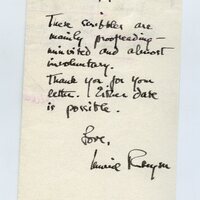 These scribbles are
mainly proofreading -
minuted and almost
involuntary.
Thank you for your
letter. Either date
is possible.
Love,